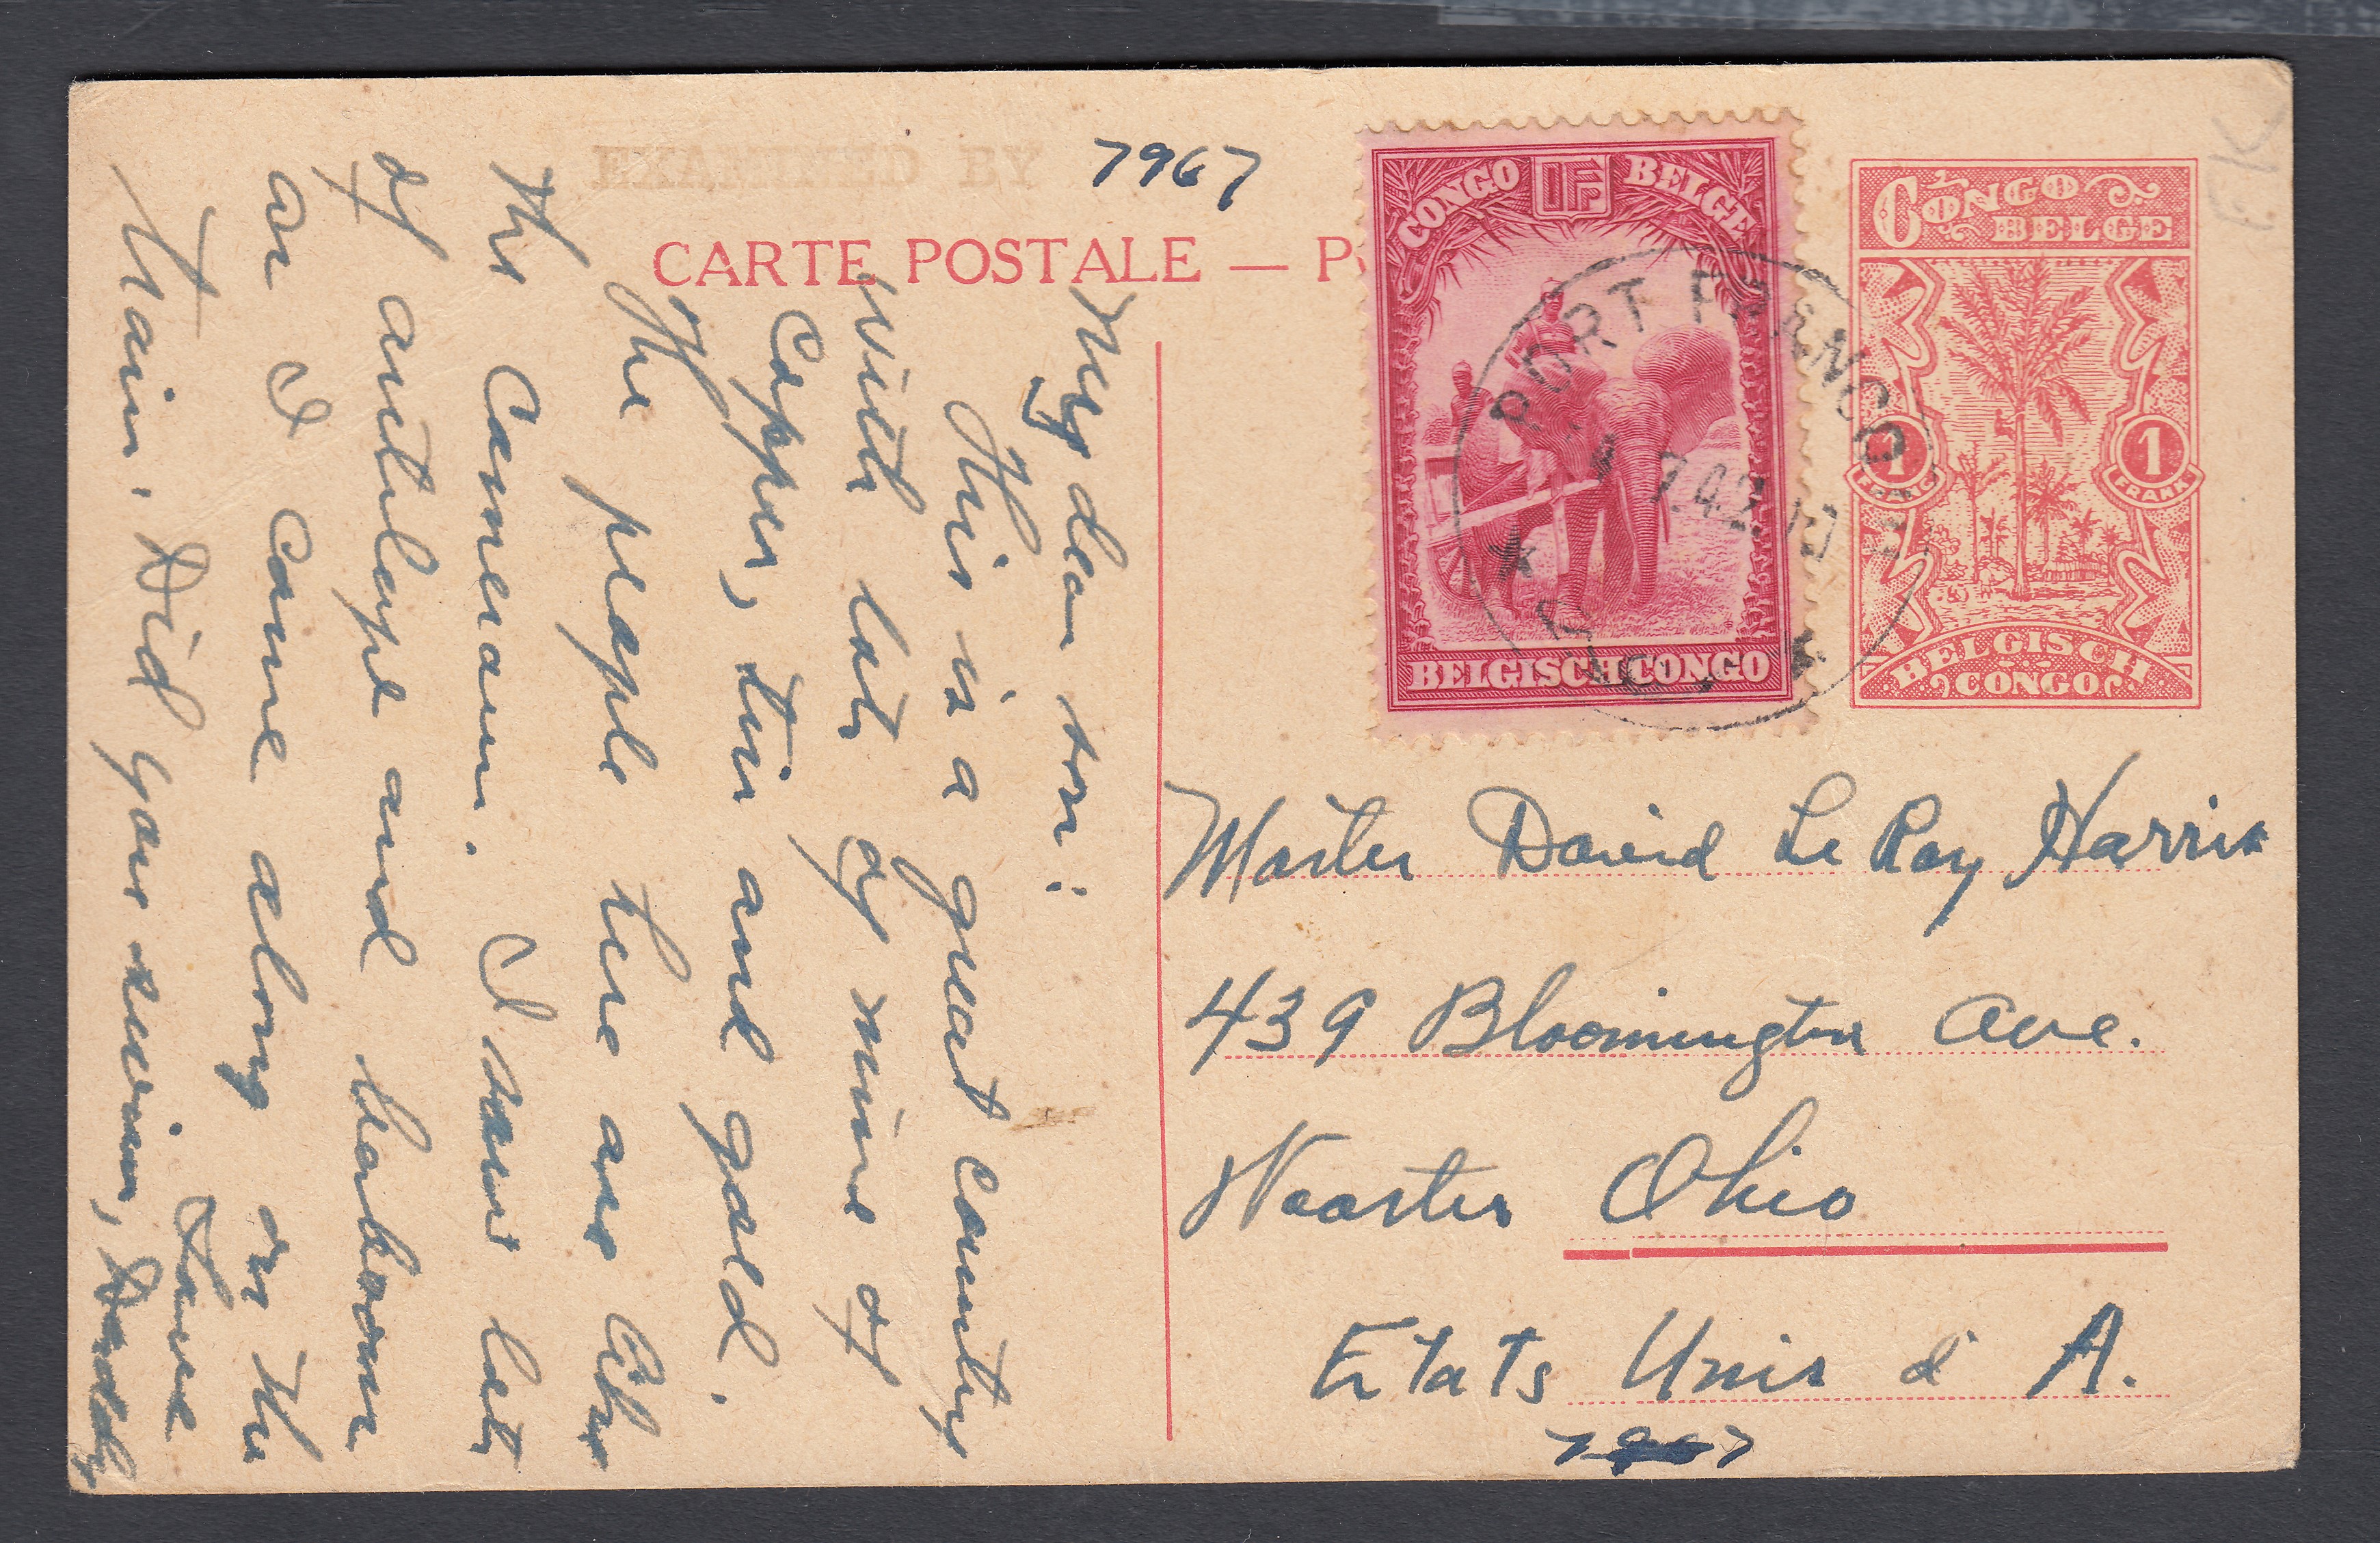 EXAMINED BY 7967
CARTE POSTALE — P
CONGO 1F BELGE
BELGISCH CONGO
CONGO
BELGE
1 1
FRANC FRANK
BELGISCH
CONGO
PORT FRANCQUI
7.42
My dear son:
This is a great country
with lots of mines of
Copper, tin and gold.
The people here are like
the Cameroun. I saw lots
of antelope and baboons
as I came along on the
train. Did you receive,
Love
Daddy
Master David Le Roy Harris
439 Bloomington Ave.
Wooster Ohio
Etats Unis d' A.
7967